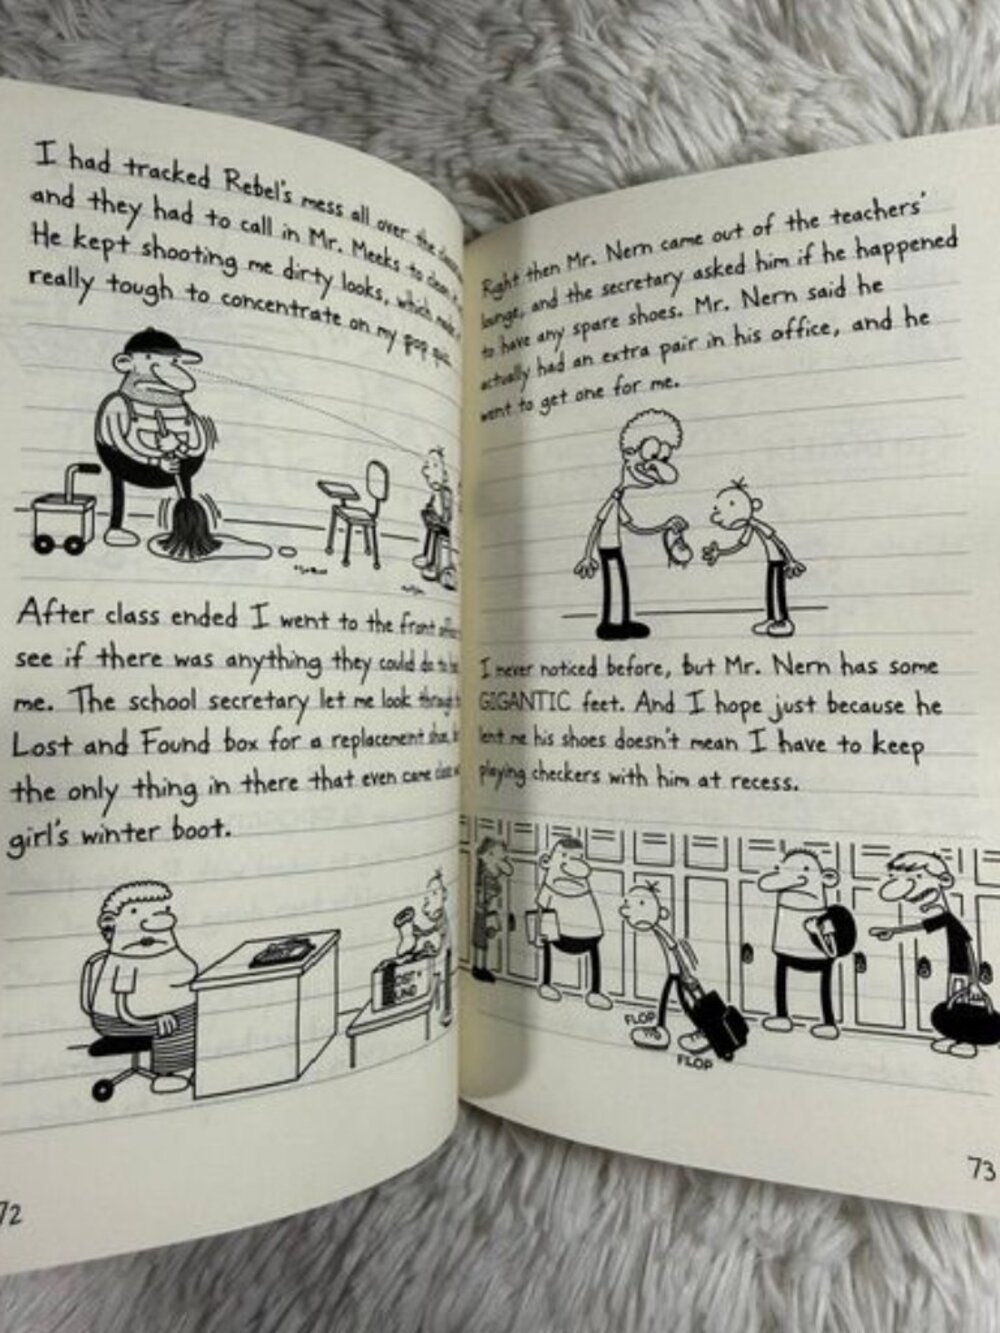 I had tracked Rebel's mess all over the
and they had to call in Mr. Meeks to clean
He kept shooting me dirty looks, which
really tough to concentrate on my pop quiz.
After class ended I went to the front
see if there was anything they could do to
me. The school secretary let me look through
Lost and Found box for a replacement
the only thing in there that even came close
girl's winter boot.
LOST N
UND
72
Right then Mr. Nern came out of the teachers'
lounge, and the secretary asked him if he happened
to have any spare shoes. Mr. Nern said he
actually had an extra pair in his office, and he
went to get one for me.
I never noticed before, but Mr. Nern has some
GIGANTIC feet. And I hope just because he
lent me his shoes doesn't mean I have to keep
playing checkers with him at recess.
FLOP
FLOP
73